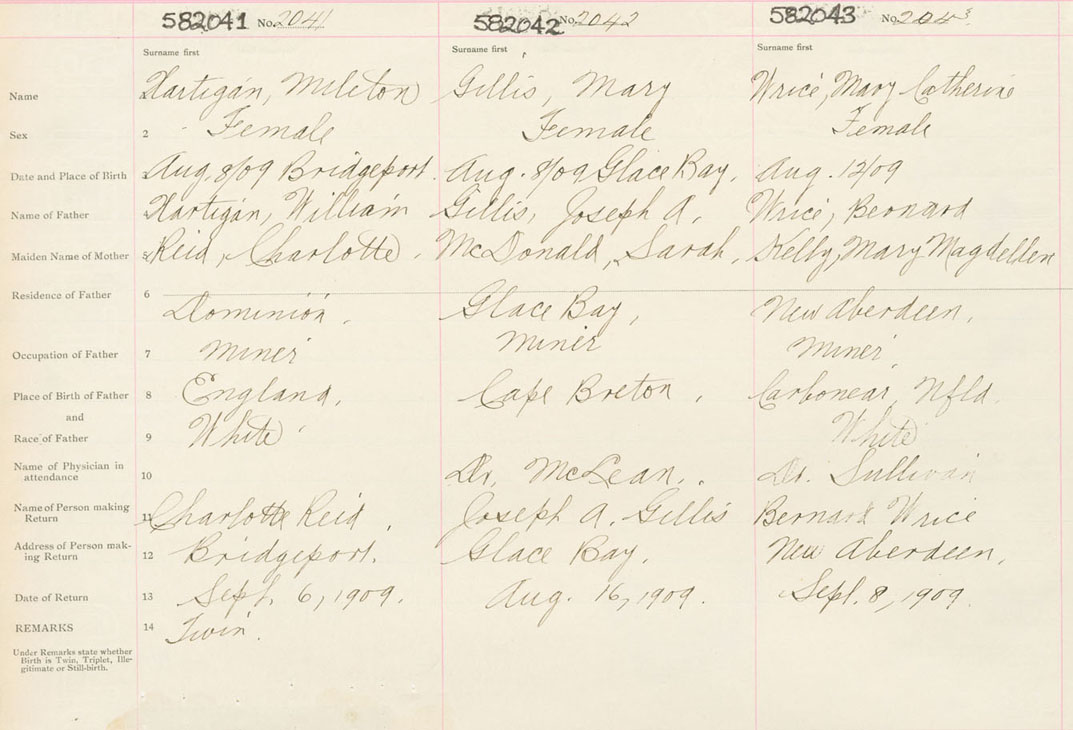 582041 No. 2041 582042 No. 2042 582043 No. 2043
Surname first Surname first Surname first
Name Hartigan, Mileton Gillis, Mary Wrice, Mary Catherine
Sex 2 Female Female Female
Date and Place of Birth Aug. 8/09 Bridgeport. Aug. 8/09 Glace Bay. Aug. 12/09
Name of Father Hartigan, William Gillis, Joseph A. Wrice, Bernard
Maiden Name of Mother Reid, Charlotte. McDonald, Sarah, Kelly, Mary Magdellen
Residence of Father 6 Dominion. Glace Bay, New Aberdeen,
Occupation of Father 7 Miner Miner Miner
Place of Birth of Father 8 England, Cape Breton, Carbonear, Nfld.
and
Race of Father 9 White White
Name of Physician in
attendance 10 Dr. McLean. Dr. Sullivan
Name of Person making
Return 11 Charlotte Reid, Joseph A. Gillis Bernard Wrice
Address of Person mak-
ing Return 12 Bridgeport. Glace Bay. New Aberdeen,
Date of Return 13 Sept. 6, 1909. Aug. 16, 1909. Sept. 8, 1909.
REMARKS 14 Twin.
Under Remarks state whether
Birth is Twin, Triplet, Ille-
gitimate or Still-birth.